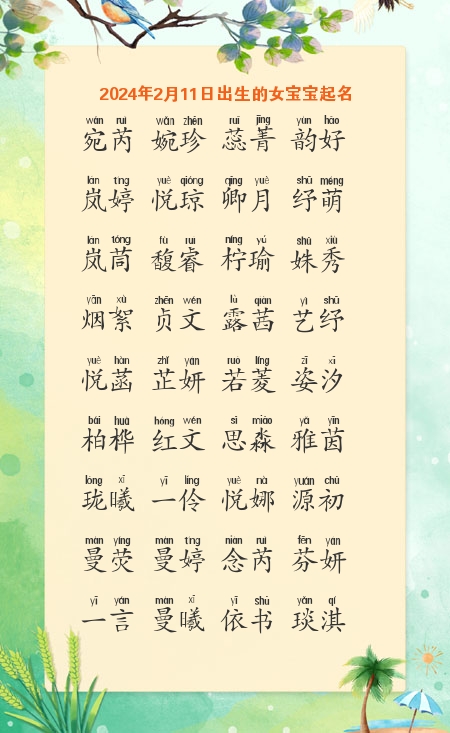 2024年2月11日出生的女宝宝起名
wǎn ruì wǎn zhēn ruǐ jīng yùn hǎo
宛芮 婉珍 蕊菁 韵好
lán tíng yuè qióng qīng yuè shū méng
岚婷 悦琼 卿月 纾萌
lán tóng fù ruì níng yú shū xiù
岚茼 馥睿 柠瑜 姝秀
yān xù zhēn wén lù qiàn yì shū
烟絮 贞文 露茜 艺纾
yuè hàn zhǐ yán ruò líng zī xī
悦菡 芷妍 若菱 姿汐
bǎi huà hóng wén sī miǎo yǎ yīn
柏桦 红文 思淼 雅茵
lóng xī yī líng yuè nà yuán chū
珑曦 一伶 悦娜 源初
màn yíng màn tíng niàn ruì fēn yán
曼荧 曼婷 念芮 芬妍
yī yán màn xī yī shū yǎn qí
一言 曼曦 依书 琰淇